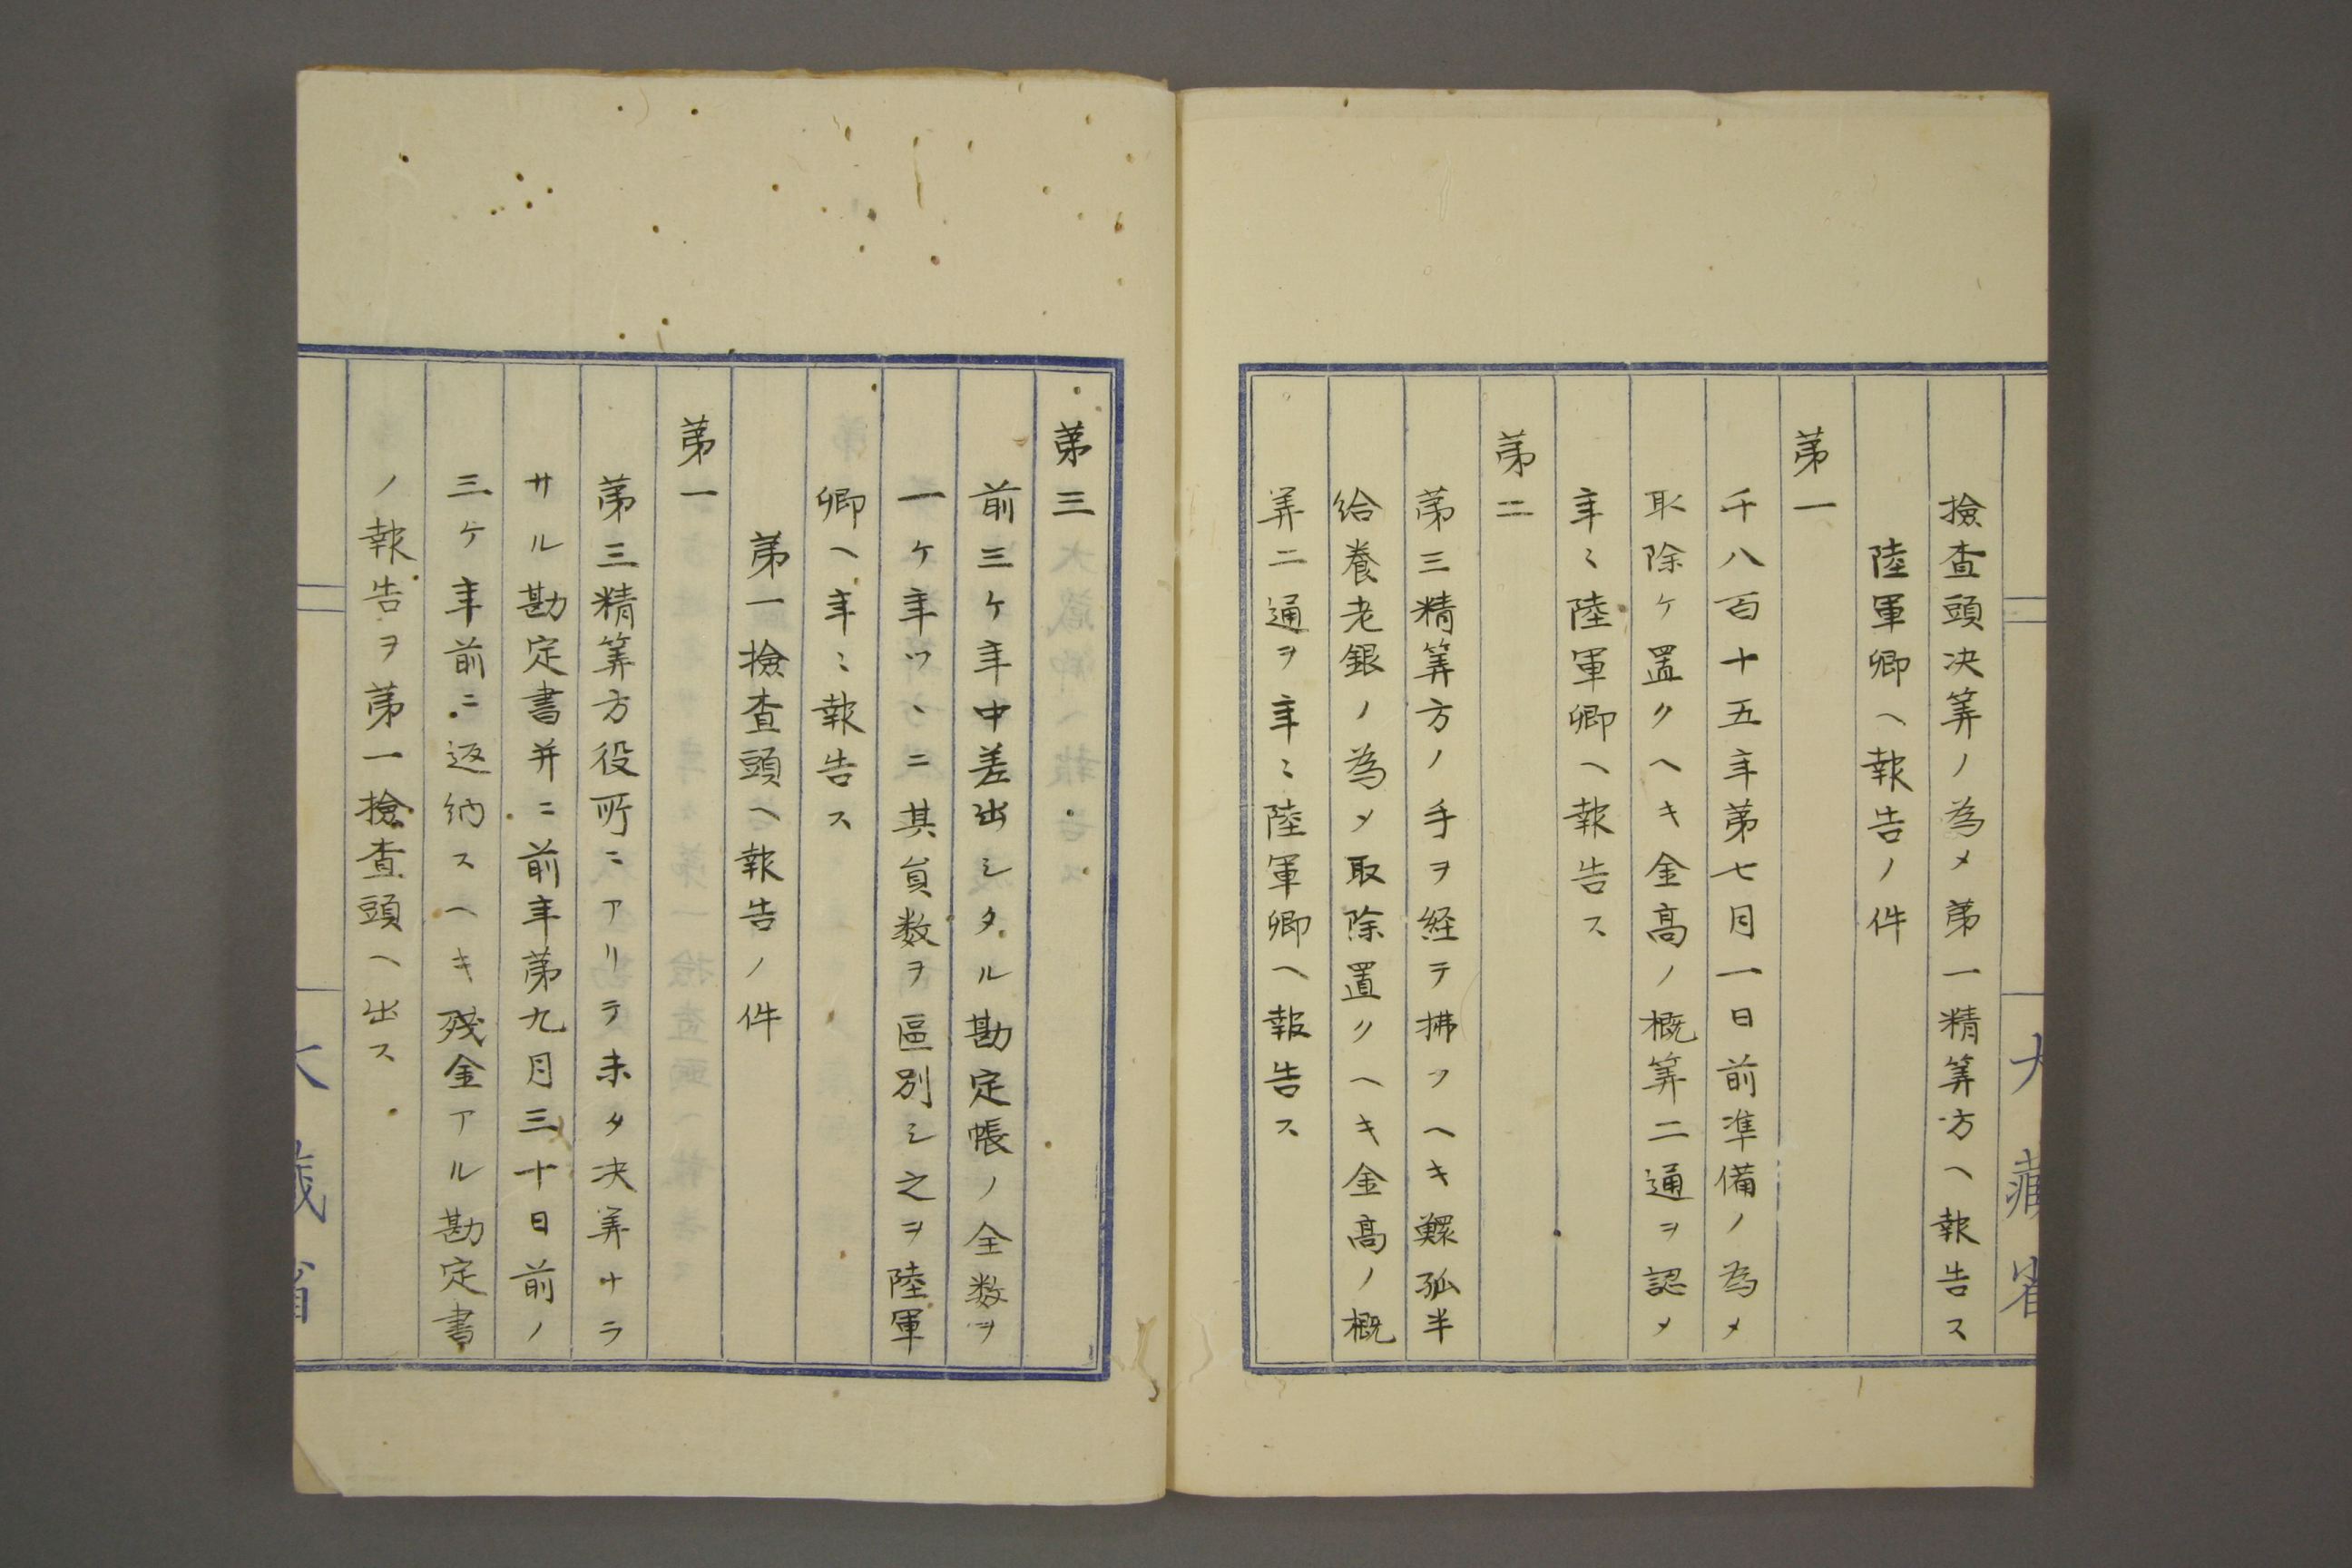 検査頭决筭ノ為メ第一精筭方ヘ報告ス
陸軍卿ヘ報告ノ件
第一
千八百十五年第七月一日前準備ノ為メ
取除ケ置クヘキ金高ノ概筭二通ヲ認メ
年〻陸軍卿ヘ報告ス
第二
第三精筭方ノ手ヲ経テ拂フヘキ鰥孤半
給養老銀ノ為メ取除置クヘキ金高ノ概
筭二通ヲ年〻陸軍卿ヘ報告ス
大藏省
第三
前三ケ年中差出シタル勘定帳ノ全数ヲ
一ケ年ツヽニ其員数ヲ區別シ之ヲ陸軍
卿ヘ年〻報告ス
第一検査頭ヘ報告ノ件
第一
第三精筭方役所ニアリテ未タ决筭ナラ
サル勘定書并ニ前年第九月三十日前ノ
三ケ年前ニ返納スヘキ残金アル勘定書
ノ報告ヲ第一検査頭ヘ出ス
大藏省